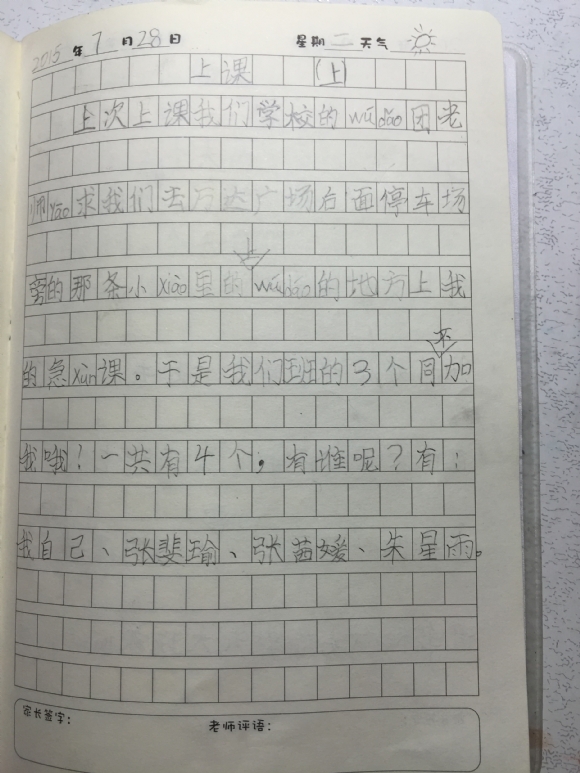 2015年7月28日 星期二 天气
上课 (上)
上次上课我们学校的wǔdǎo团老
师yāo求我们去万达广场后面停车场
旁的那条小xiào里的wǔdǎo的地方上我
上
的急xùn课。于是我们班的3个同加
不
我哦！一共有4个，有谁呢？有：
我自己、张斐瑜、张茜媛、朱星雨。
家长签字： 老师评语：